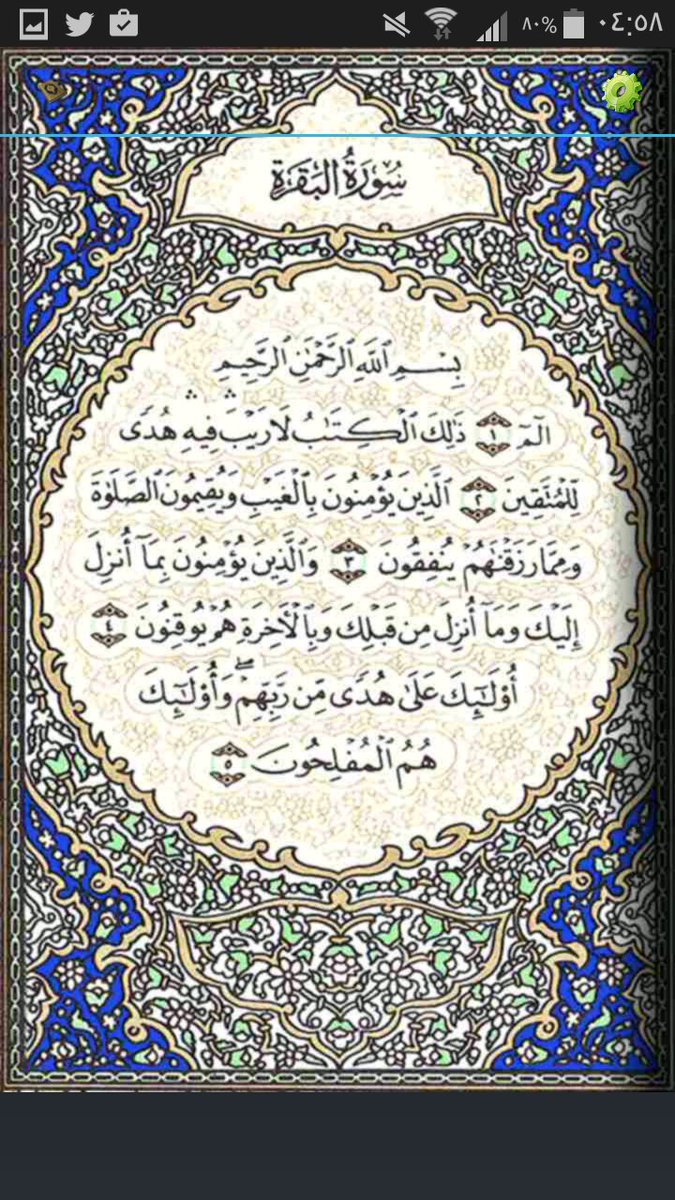 ٨٠% ٠٤:٥٨
سُورَةُ الْبَقَرَةِ
بِسْمِ ٱللَّهِ ٱلرَّحْمَٰنِ ٱلرَّحِيمِ
الٓمٓ ١ ذَٰلِكَ ٱلْكِتَٰبُ لَا رَيْبَ ۛ فِيهِ ۛ هُدًى
لِّلْمُتَّقِينَ ٢ ٱلَّذِينَ يُؤْمِنُونَ بِٱلْغَيْبِ وَيُقِيمُونَ ٱلصَّلَوٰةَ
وَمِمَّا رَزَقْنَٰهُمْ يُنفِقُونَ ٣ وَٱلَّذِينَ يُؤْمِنُونَ بِمَآ أُنزِلَ
إِلَيْكَ وَمَآ أُنزِلَ مِن قَبْلِكَ وَبِٱلْءَاخِرَةِ هُمْ يُوقِنُونَ ٤
أُو۟لَٰٓئِكَ عَلَىٰ هُدًى مِّن رَّبِّهِمْ ۖ وَأُو۟لَٰٓئِكَ
هُمُ ٱلْمُفْلِحُونَ ٥